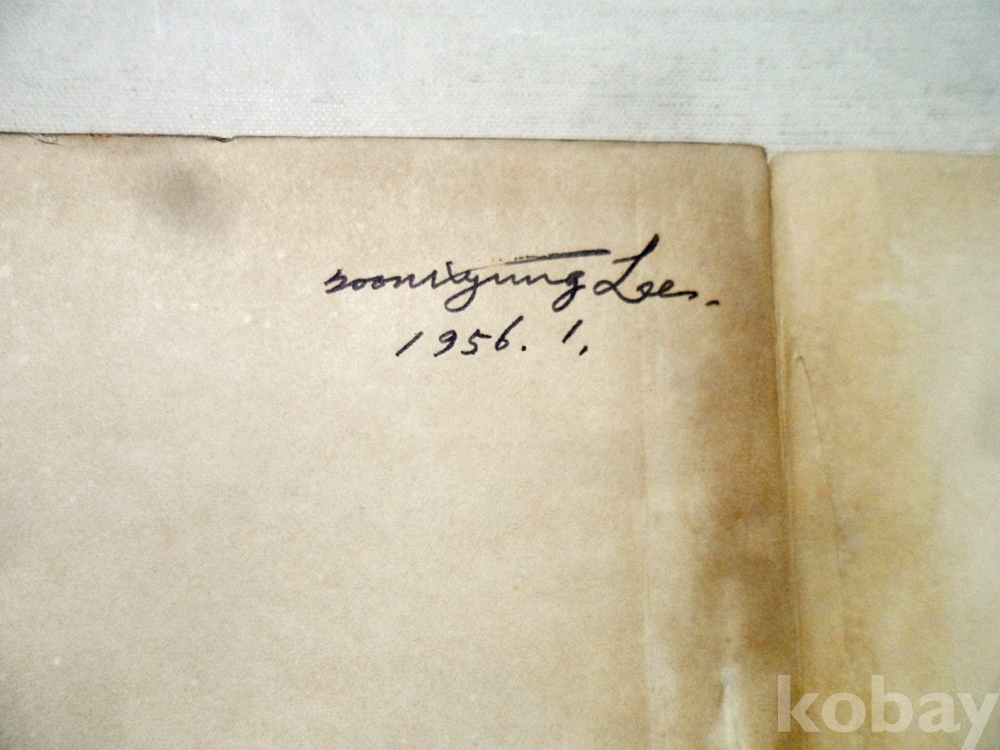 Lee.
1956. 1.
kobay